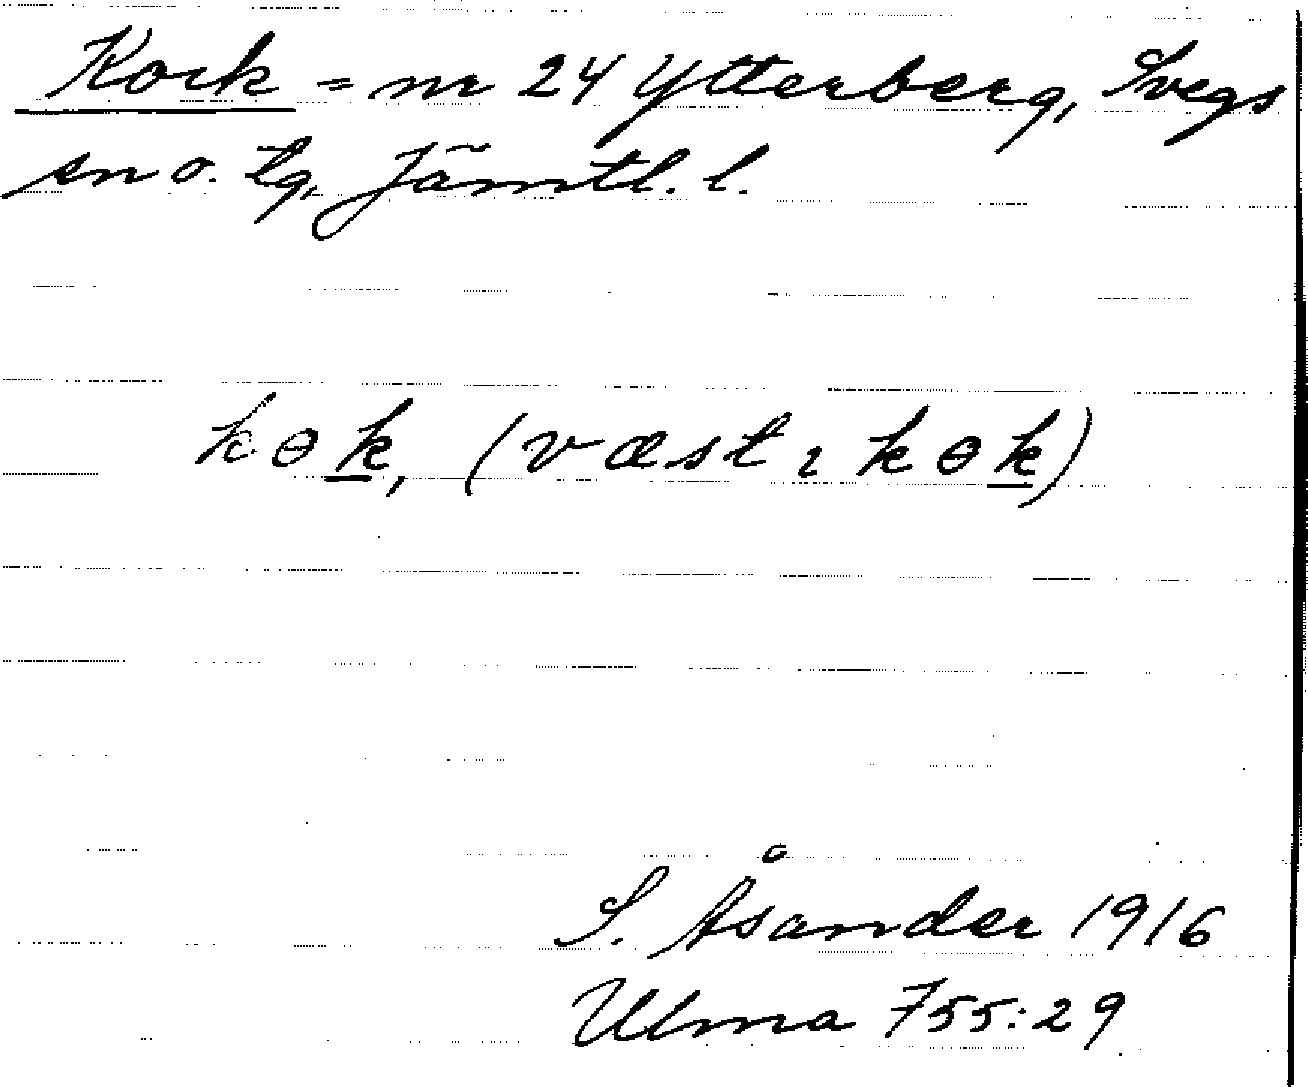 Kock = nr 24 Ytterberg, Svegs
sn o. tg, Jämtl. l.
kɵk, (væst ɩ kɵk)
S. Åsander 1916
Ulma 755:29